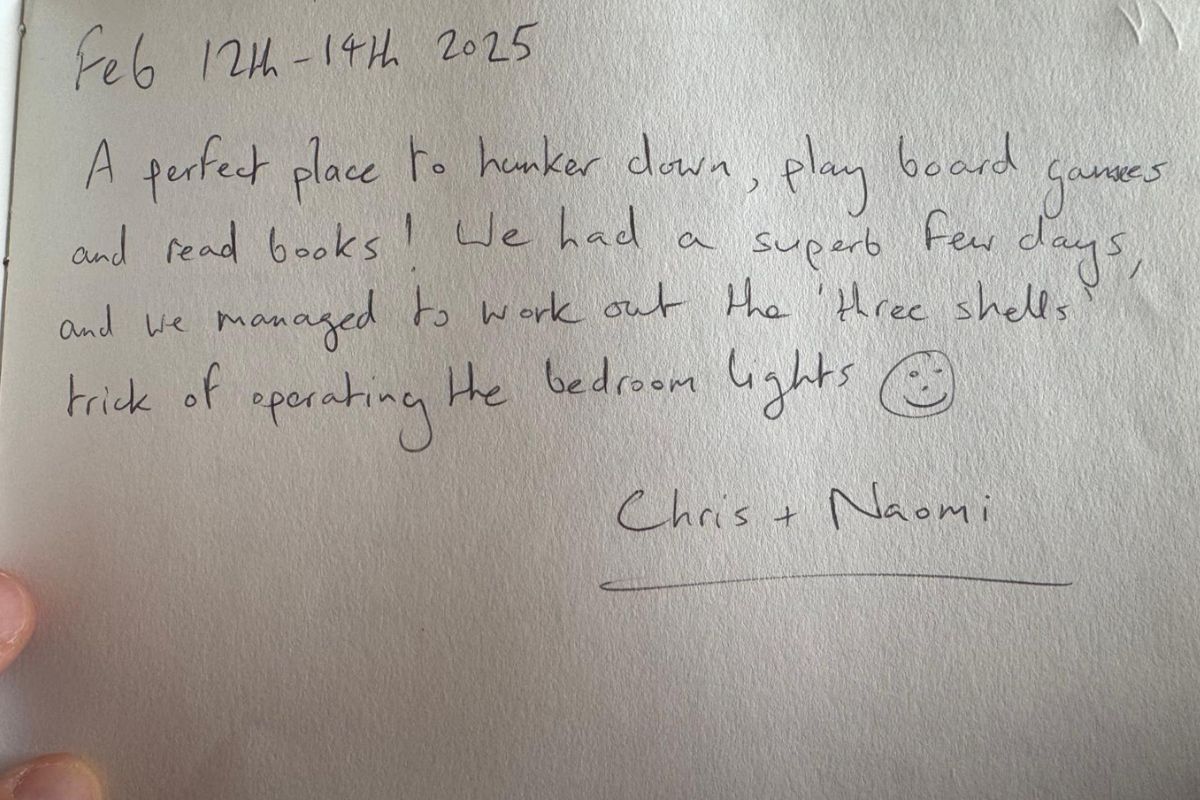 Feb 12th - 14th 2025
A perfect place to hunker down, play board games
and read books! We had a superb few days,
and we managed to work out the 'three shells'
trick of operating the bedroom lights ☺
Chris + Naomi